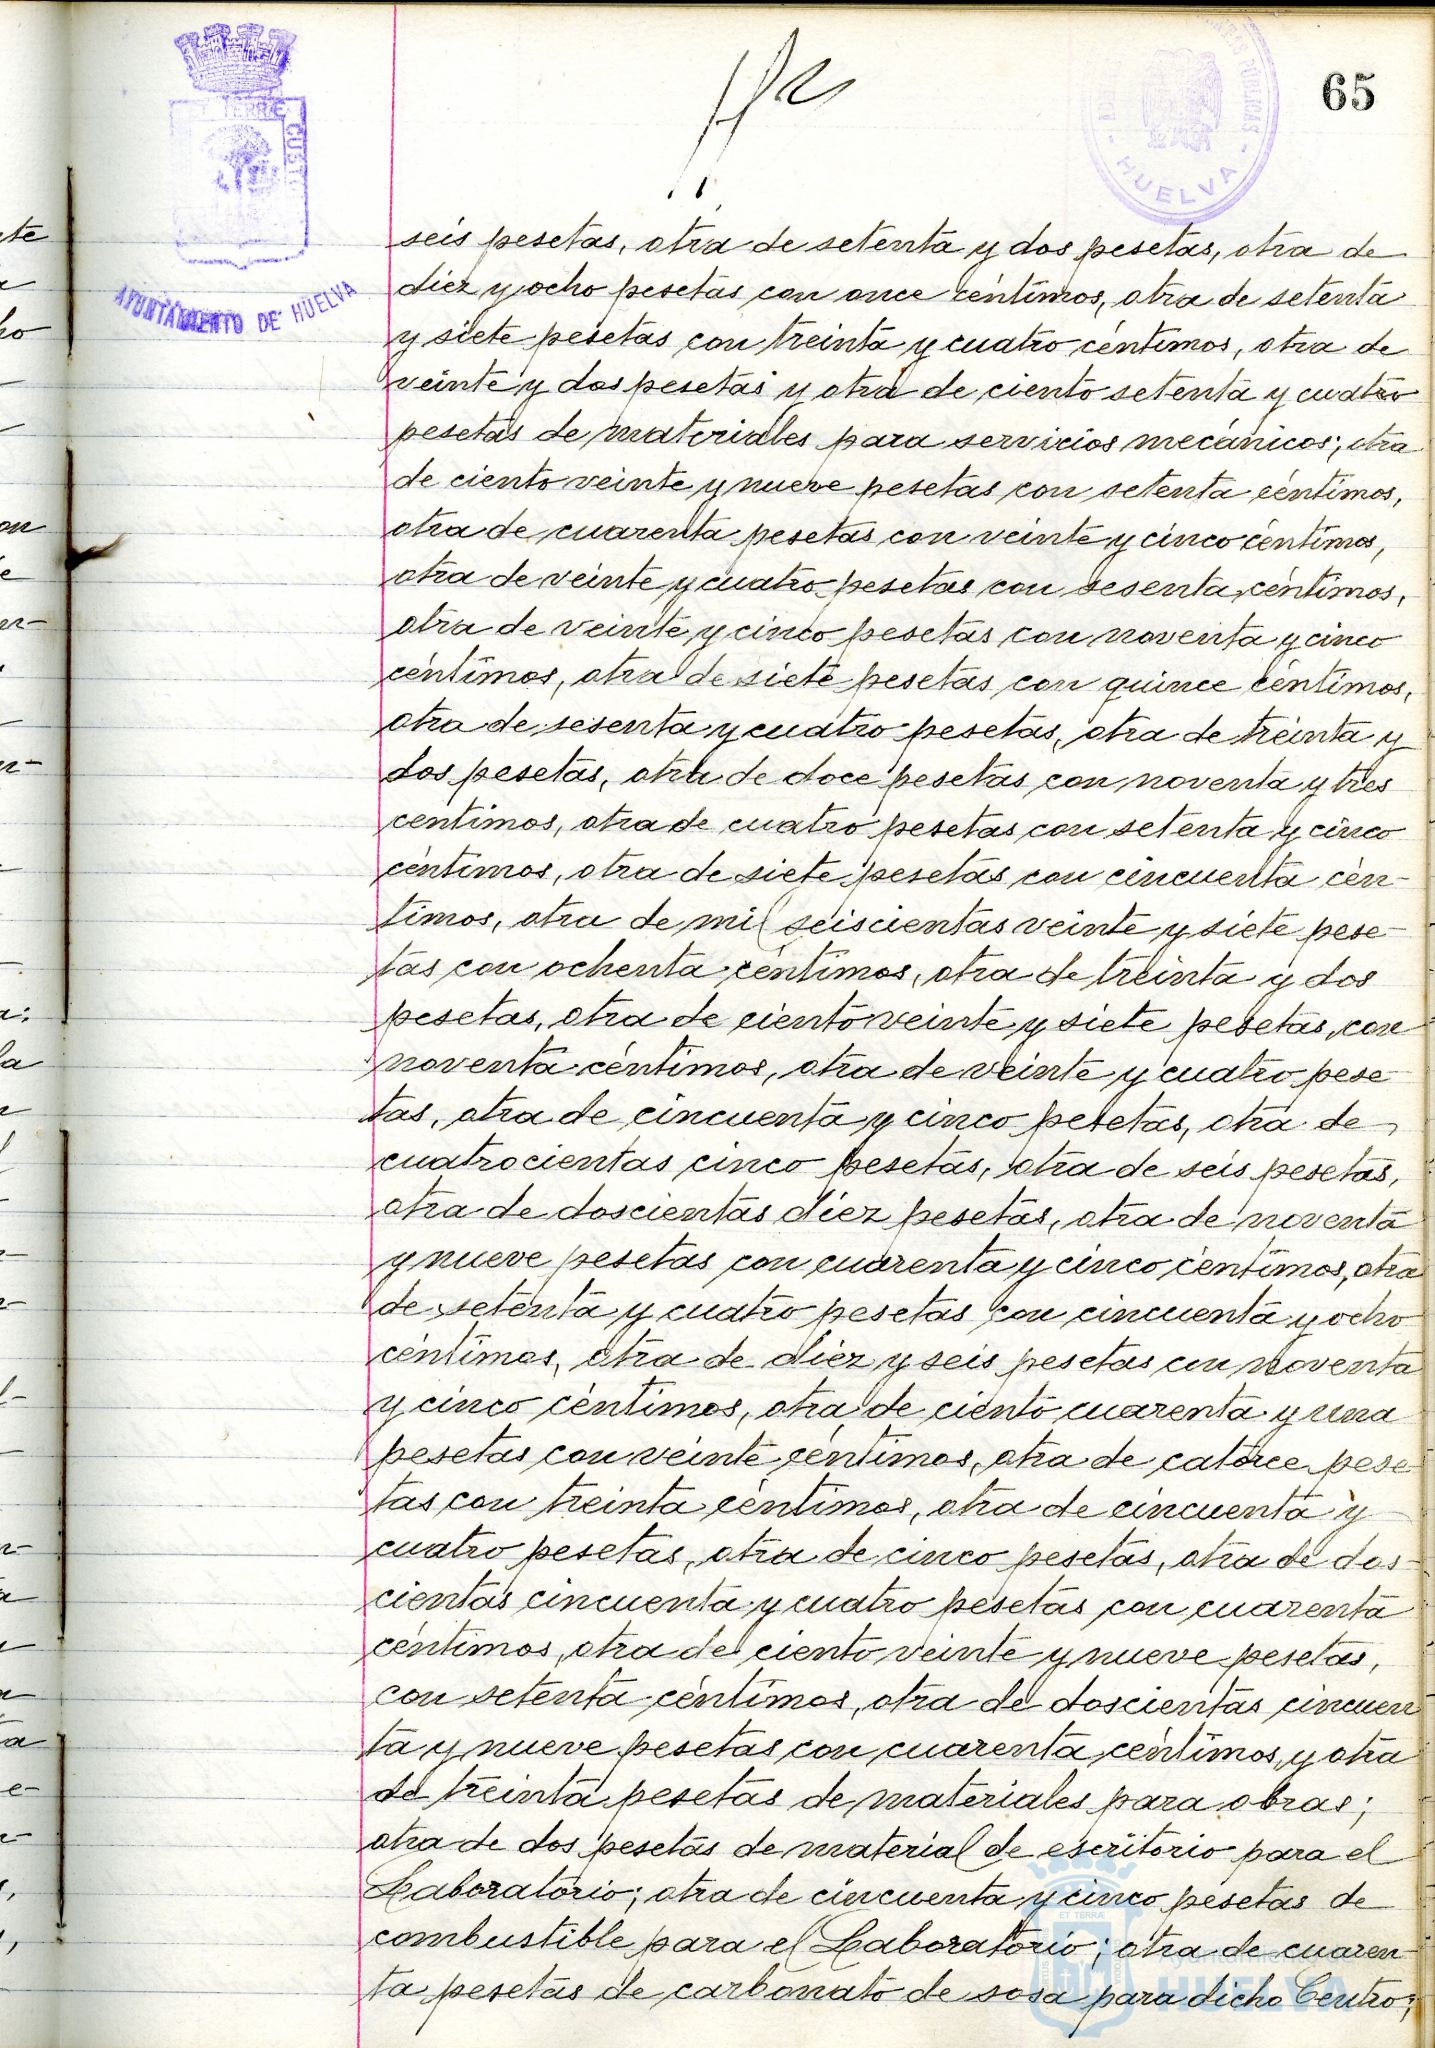 65
TERRÆ
CUSTO
AYUNTAMIENTO DE HUELVA
HUELVA
seis pesetas, otra de setenta y dos pesetas, otra de
diez y ocho pesetas con once céntimos, otra de setenta
y siete pesetas con treinta y cuatro céntimos, otra de
veinte y dos pesetas y otra de ciento setenta y cuatro
pesetas de materiales para servicios mecánicos; otra
de ciento veinte y nueve pesetas con setenta céntimos,
otra de cuarenta pesetas con veinte y cinco céntimos,
otra de veinte y cuatro pesetas con sesenta céntimos,
otra de veinte y cinco pesetas con noventa y cinco
céntimos, otra de siete pesetas con quince céntimos,
otra de sesenta y cuatro pesetas, otra de treinta y
dos pesetas, otra de doce pesetas con noventa y tres
centimos, otra de cuatro pesetas con setenta y cinco
céntimos, otra de siete pesetas con cincuenta cén-
timos, otra de mil seiscientas veinte y siete pese-
tas con ochenta céntimos, otra de treinta y dos
pesetas, otra de ciento veinte y siete pesetas, con
noventa céntimos, otra de veinte y cuatro pese
tas, otra de cincuenta y cinco pesetas, otra de
cuatrocientas cinco pesetas, otra de seis pesetas,
otra de doscientas diez pesetas, otra de noventa
y nueve pesetas con cuarenta y cinco céntimos, otra
de setenta y cuatro pesetas con cincuenta y ocho
céntimos, otra de diez y seis pesetas con noventa
y cinco céntimos, otra de ciento cuarenta y una
pesetas con veinte céntimos, otra de catorce pese
tas con treinta céntimos, otra de cincuenta y
cuatro pesetas, otra de cinco pesetas, otra de dos-
cientas cincuenta y cuatro pesetas con cuarenta
céntimos, otra de ciento veinte y nueve pesetas,
con setenta céntimos, otra de doscientas cincuen
ta y nueve pesetas con cuarenta céntimos, y otra
de treinta pesetas de materiales para obras;
otra de dos pesetas de material de escritorio para el
Laboratorio; otra de cincuenta y cinco pesetas de
combustible para el Laboratorio; otra de cuaren-
ta pesetas de carbonato de sosa para dicho Centro;
Ayuntamiento de
HUELVA